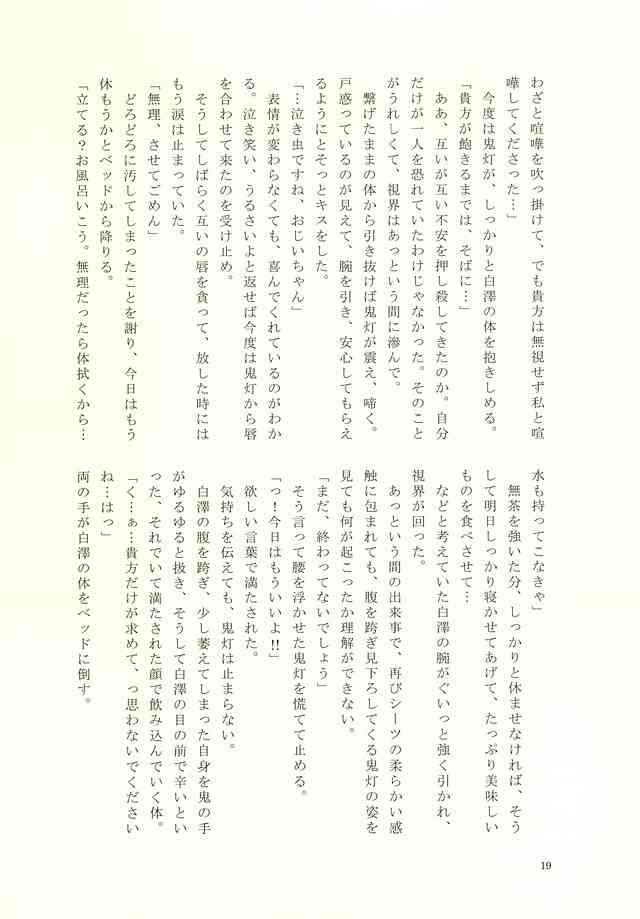 わざと喧嘩を吹っ掛けて、でも貴方は無視せず私と喧
嘩してくださった…」
　今度は鬼灯が、しっかりと白澤の体を抱きしめる。
「貴方が飽きるまでは、そばに…」
　ああ、互いが互い不安を押し殺してきたのか。自分
だけが一人を恐れていたわけじゃなかった。そのこと
がうれしくて、視界はあっという間に滲んで。
　繋げたままの体から引き抜けば鬼灯が震え、啼く。
戸惑っているのが見えて、腕を引き、安心してもらえ
るようにとそっとキスをした。
「…泣き虫ですね、おじいちゃん」
　表情が変わらなくても、喜んでくれているのがわか
る。泣き笑い、うるさいよと返せば今度は鬼灯から唇
を合わせて来たのを受け止め。
　そうしてしばらく互いの唇を貪って、放した時には
もう涙は止まっていた。
「無理、させてごめん」
　どろどろに汚してしまったことを謝り、今日はもう
休もうかとベッドから降りる。
「立てる？お風呂いこう。無理だったら体拭くから…
水も持ってこなきゃ」
　無茶を強いた分、しっかりと休ませなければ、そう
して明日しっかり寝かせてあげて、たっぷり美味しい
ものを食べさせて…
　などと考えていた白澤の腕がぐいっと強く引かれ、
視界が回った。
　あっという間の出来事で、再びシーツの柔らかい感
触に包まれても、腹を跨ぎ見下ろしてくる鬼灯の姿を
見ても何が起こったか理解ができない。
「まだ、終わってないでしょう」
　そう言って腰を浮かせた鬼灯を慌てて止める。
「っ！今日はもういいよ!!」
　欲しい言葉で満たされた。
　気持ちを伝えても、鬼灯は止まらない。
　白澤の腹を跨ぎ、少し萎えてしまった自身を鬼の手
がゆるゆると扱き、そうして白澤の目の前で辛いとい
った、それでいて満たされた顔で飲み込んでいく体。
「く…ぁ…貴方だけが求めて、っ思わないでください
ね…はっ」
　両の手が白澤の体をベッドに倒す。
19